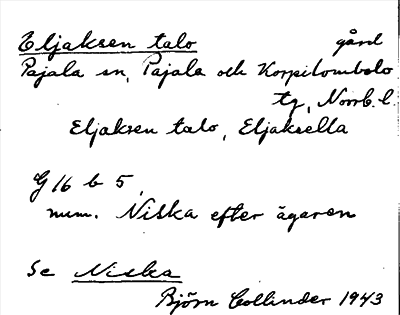 Eljaksen talo gård
Pajala sn, Pajala och Korpilombolo
tg, Norrb. l.
Eljaksen talo, Eljaksella
G 16 b 5,
num. Niska efter ägaren
Se Niska
Björn Collinder 1943